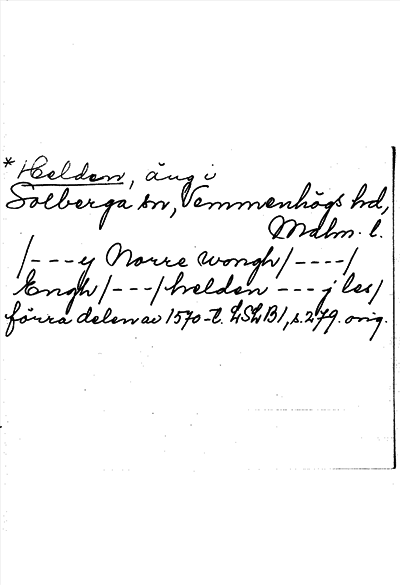 *Helden, äng i
Solberga sn, Vemmenhögs hd,
Malm. l.
/---y Norre wongh/----/
Engh/---/helden ---j les/
förra delen av 1570-t. LSLB1, s. 279. orig.